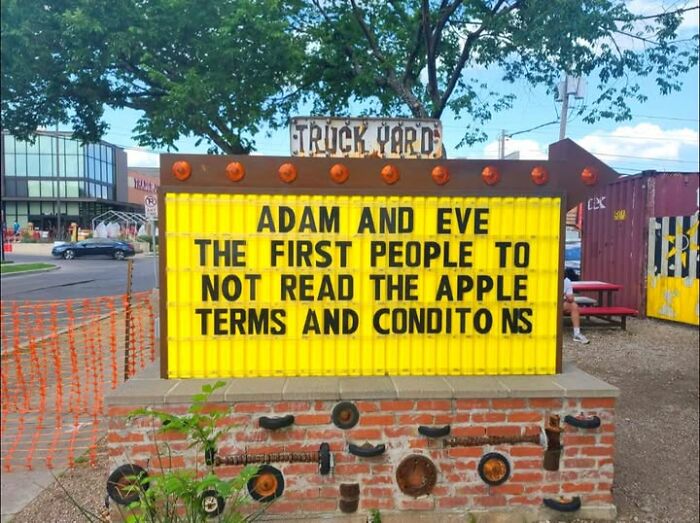 TRUCK YARD
ADAM AND EVE
THE FIRST PEOPLE TO
NOT READ THE APPLE
TERMS AND CONDITO NS